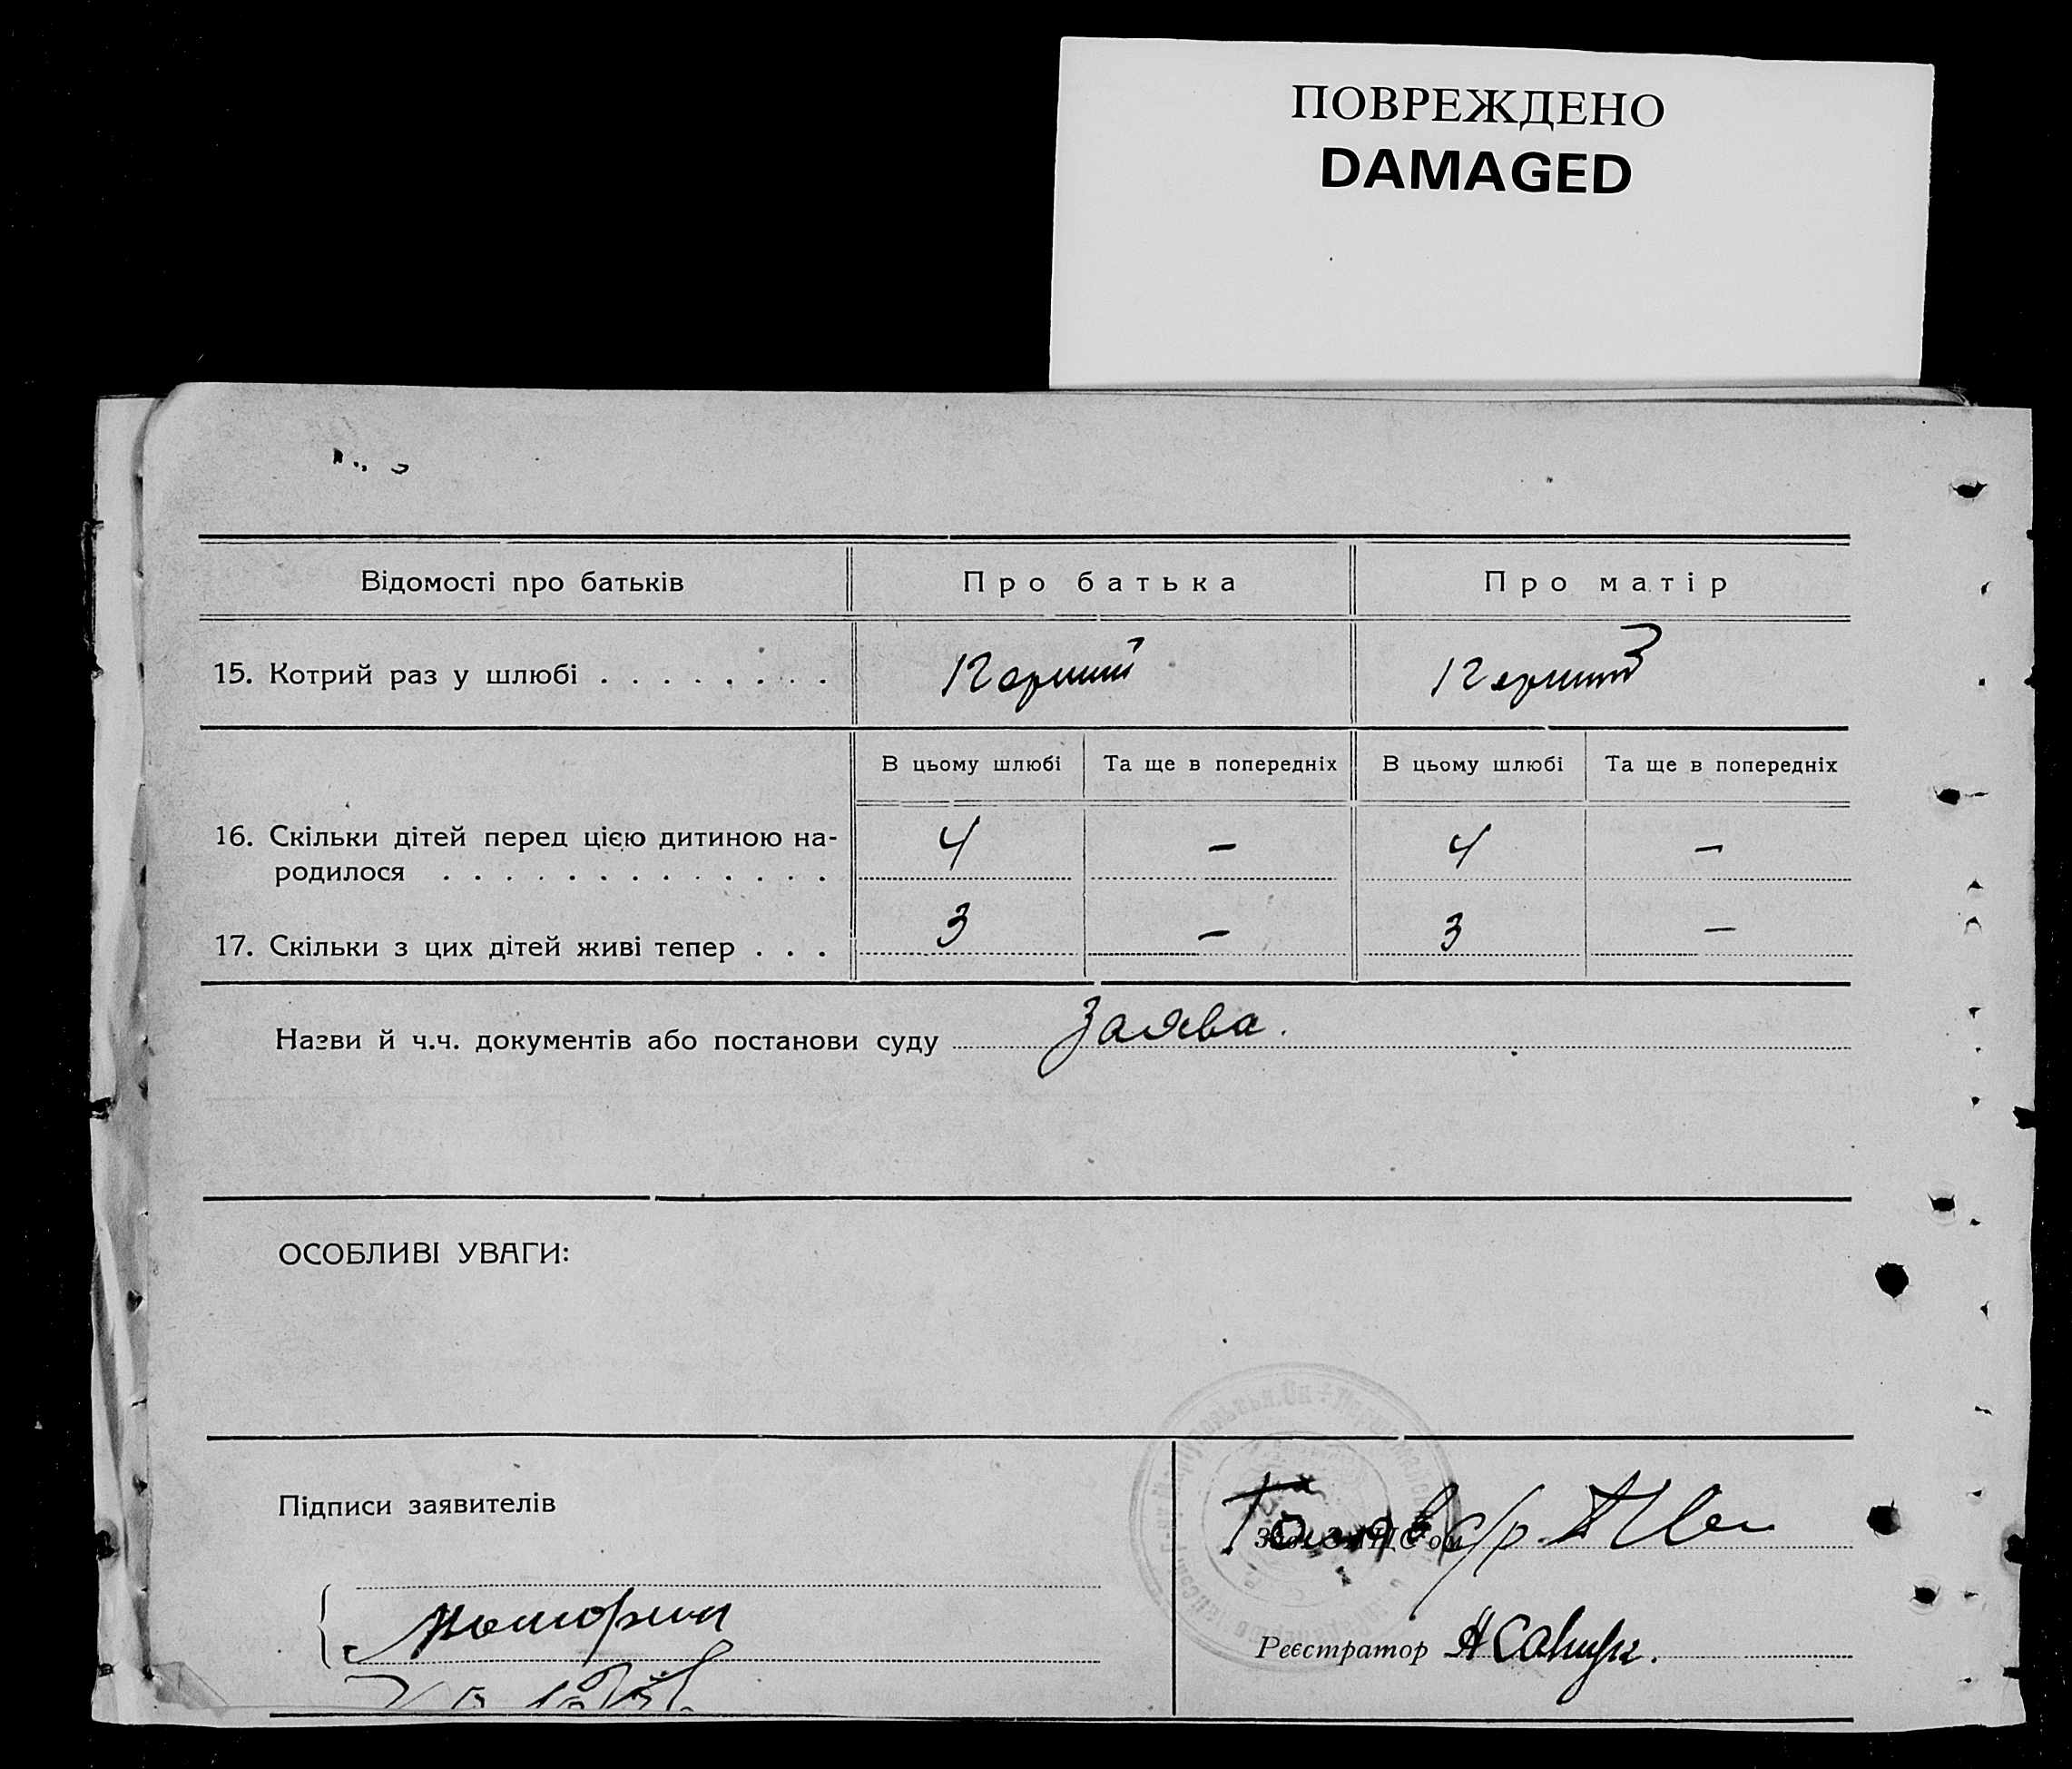 ПОВРЕЖДЕНО
DAMAGED
Відомості про батьків
Про батька
Про матір
15. Котрий раз у шлюбі . . . . . . . .
Перший
Перший
В цьому шлюбі
Та ще в попередніх
В цьому шлюбі
Та ще в попередніх
16. Скільки дітей перед цією дитиною на-
родилося . . . . . . . . . . . . .
4
–
4
–
17. Скільки з цих дітей живі тепер . . .
3
–
3
–
Назви й ч.ч. документів або постанови суду Заява.
ОСОБЛИВІ УВАГИ:
Підписи заявителів
Голова с/р
Реєстратор